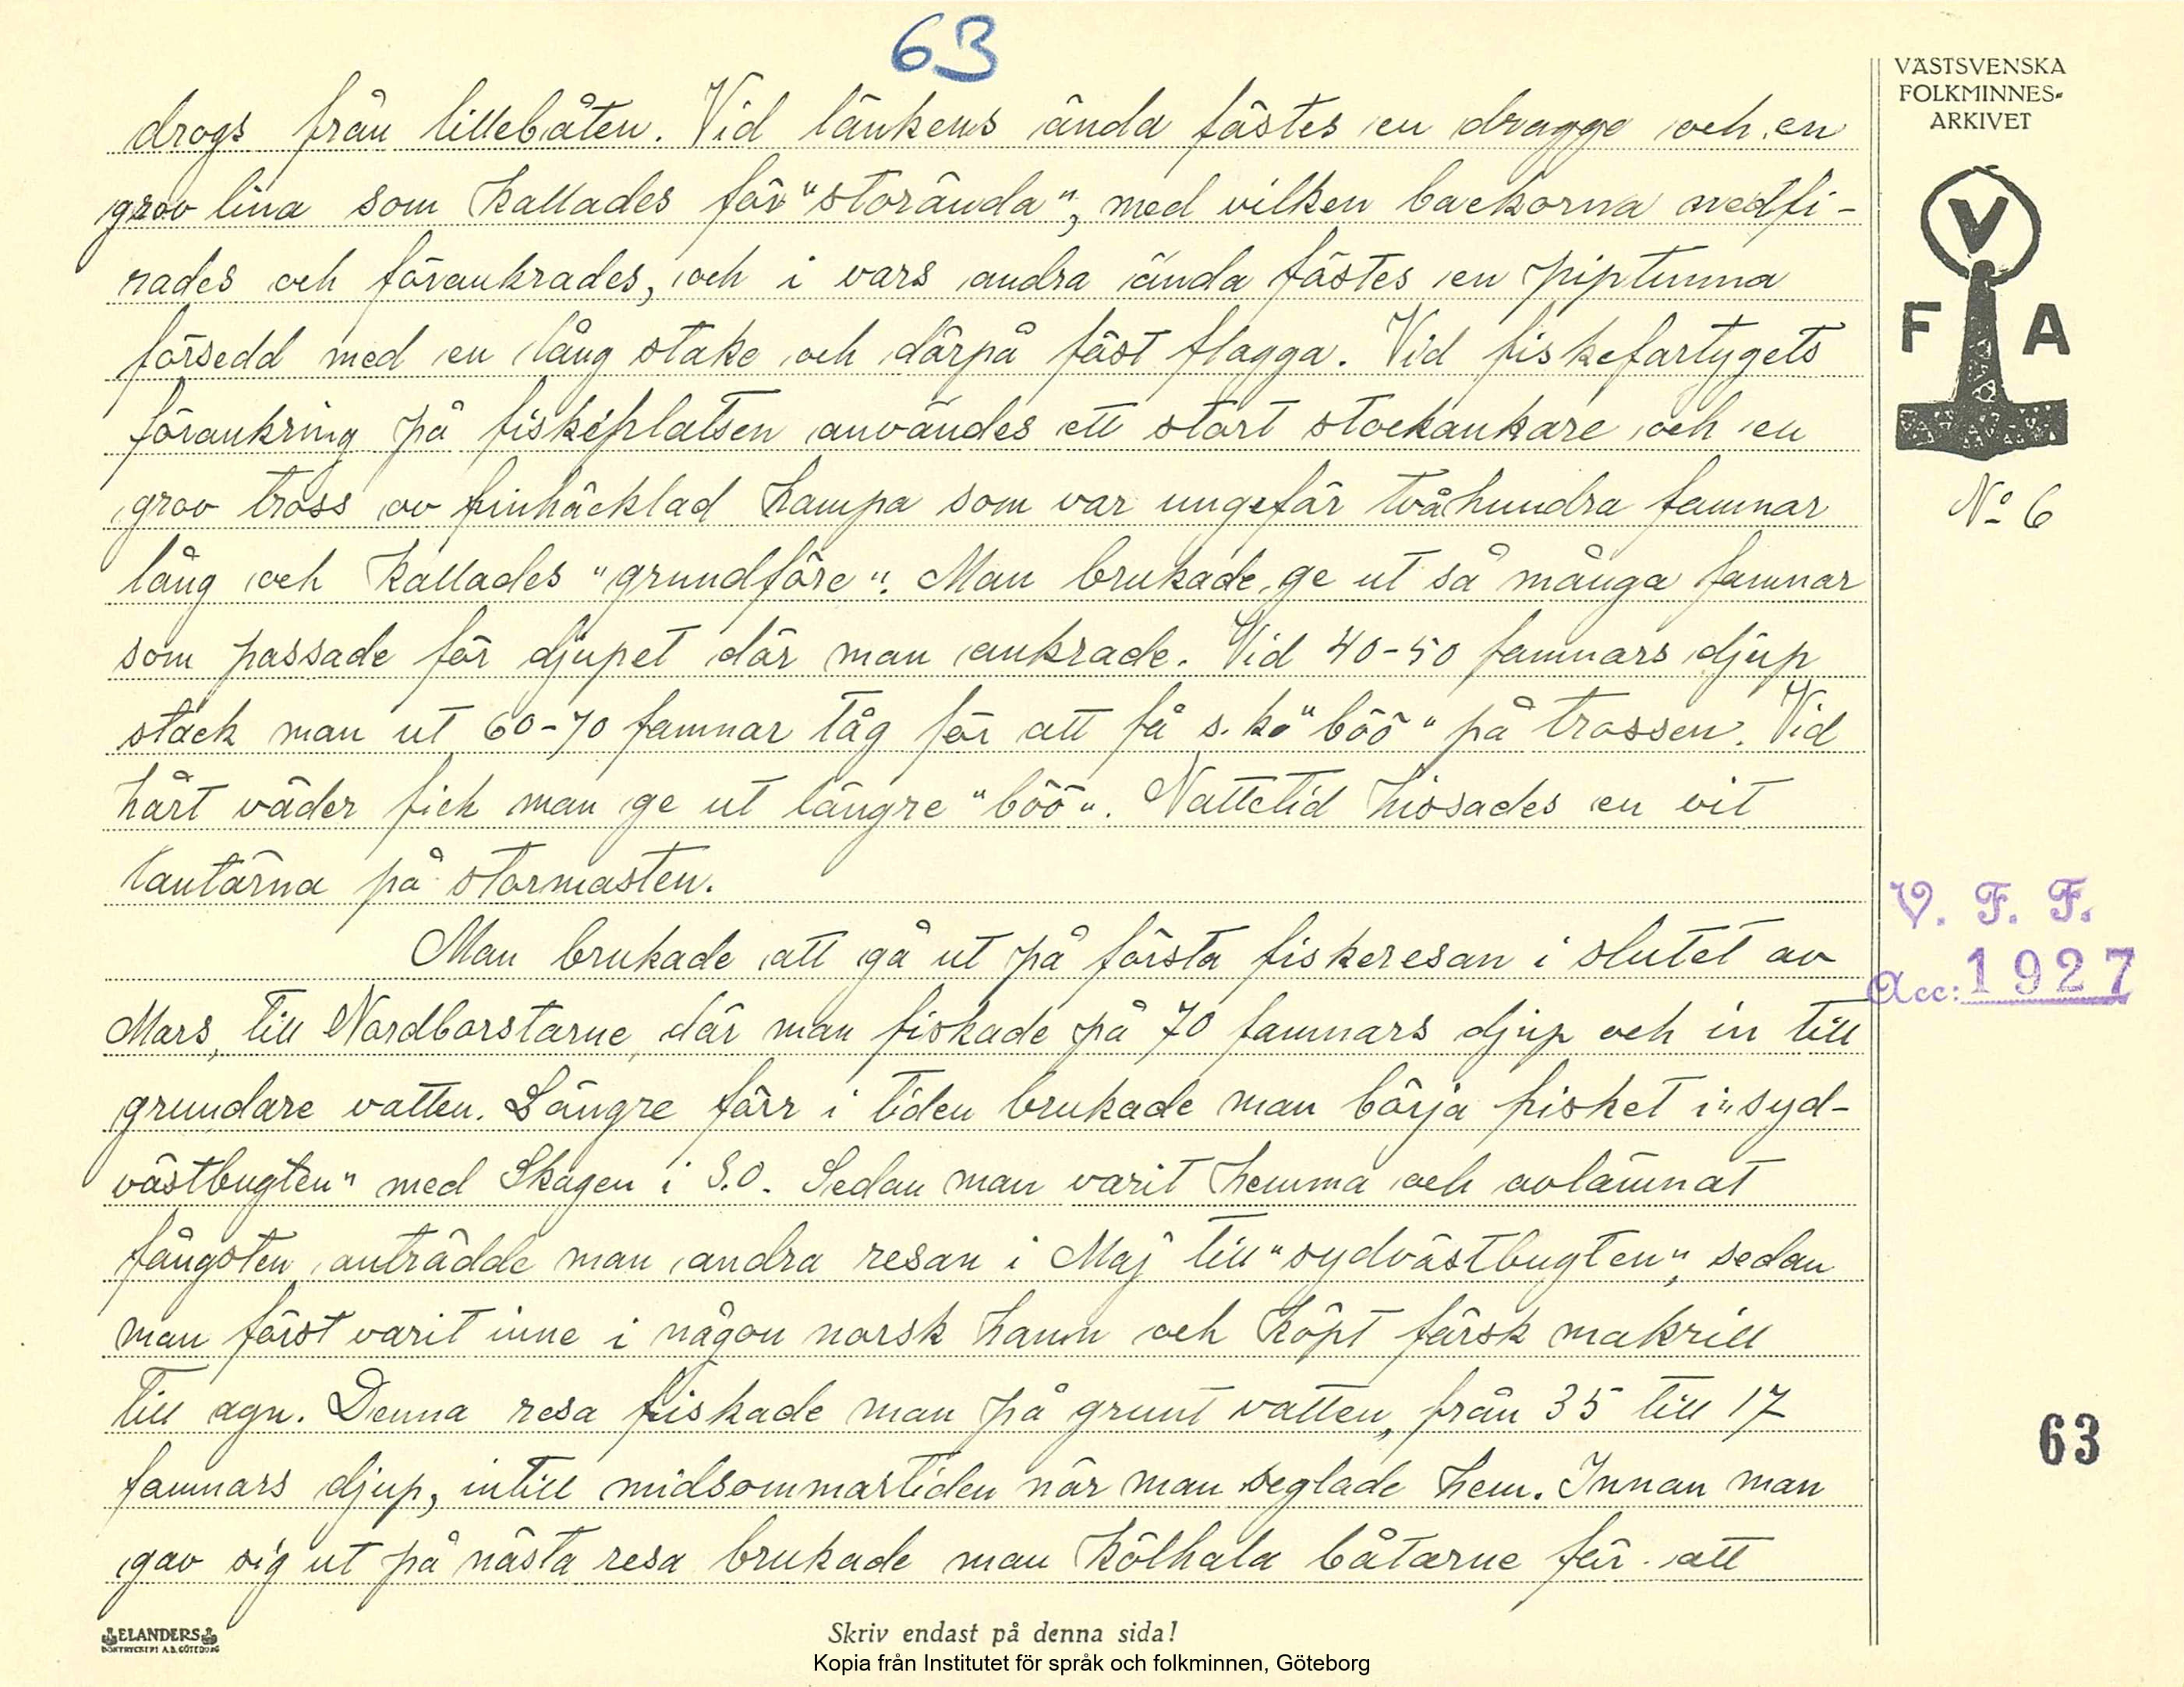 63
drogs från lillebåten. Vid länkens ända fästes en dragge och en
grov lina som kallades för "storända", med vilken backorna nedfi-
rades och förankrades, och i vars andra ända fästes en piptunna
försedd med en lång stake och därpå fäst flagga. Vid fiskefartygets
förankring på fiskeplatsen användes ett stort stockankare och en
grov tross av finhäcklad hampa som var ungefär tvåhundra famnar
lång och kallades "grundföre". Man brukade ge ut så många famnar
som passade för djupet där man ankrade. Vid 40-50 famnars djup
stack man ut 60-70 famnar tåg för att få s.k. "böö" på trossen. Vid
hårt väder fick man ge ut längre "böö". Nattetid hissades en vit
lantärna på stormasten.
Man brukade att gå ut på första fiskeresan i slutet av
Mars, till Nordborstarne, där man fiskade på 70 famnars djup och in till
grundare vatten. Längre förr i tiden brukade man börja fisket i "syd-
västbugten" med Skagen i S.O. Sedan man varit hemma och avlämnat
fångsten, anträdde man andra resan i Maj till "sydvästbugten", sedan
man först varit inne i någon norsk hamn och köpt färsk makrill
till agn. Denna resa fiskade man på grunt vatten, från 35 till 17
famnars djup, intill midsommartiden när man seglade hem. Innan man
gav sig ut på nästa resa brukade man kölhala båtarne för att
VÄSTSVENSKA
FOLKMINNES-
ARKIVET
V
F A
No 6
V. F. F.
Acc: 1927
63
ELANDERS
BOKTRYCKERI A.B. GÖTEBORG
Skriv endast på denna sida!
Kopia från Institutet för språk och folkminnen, Göteborg